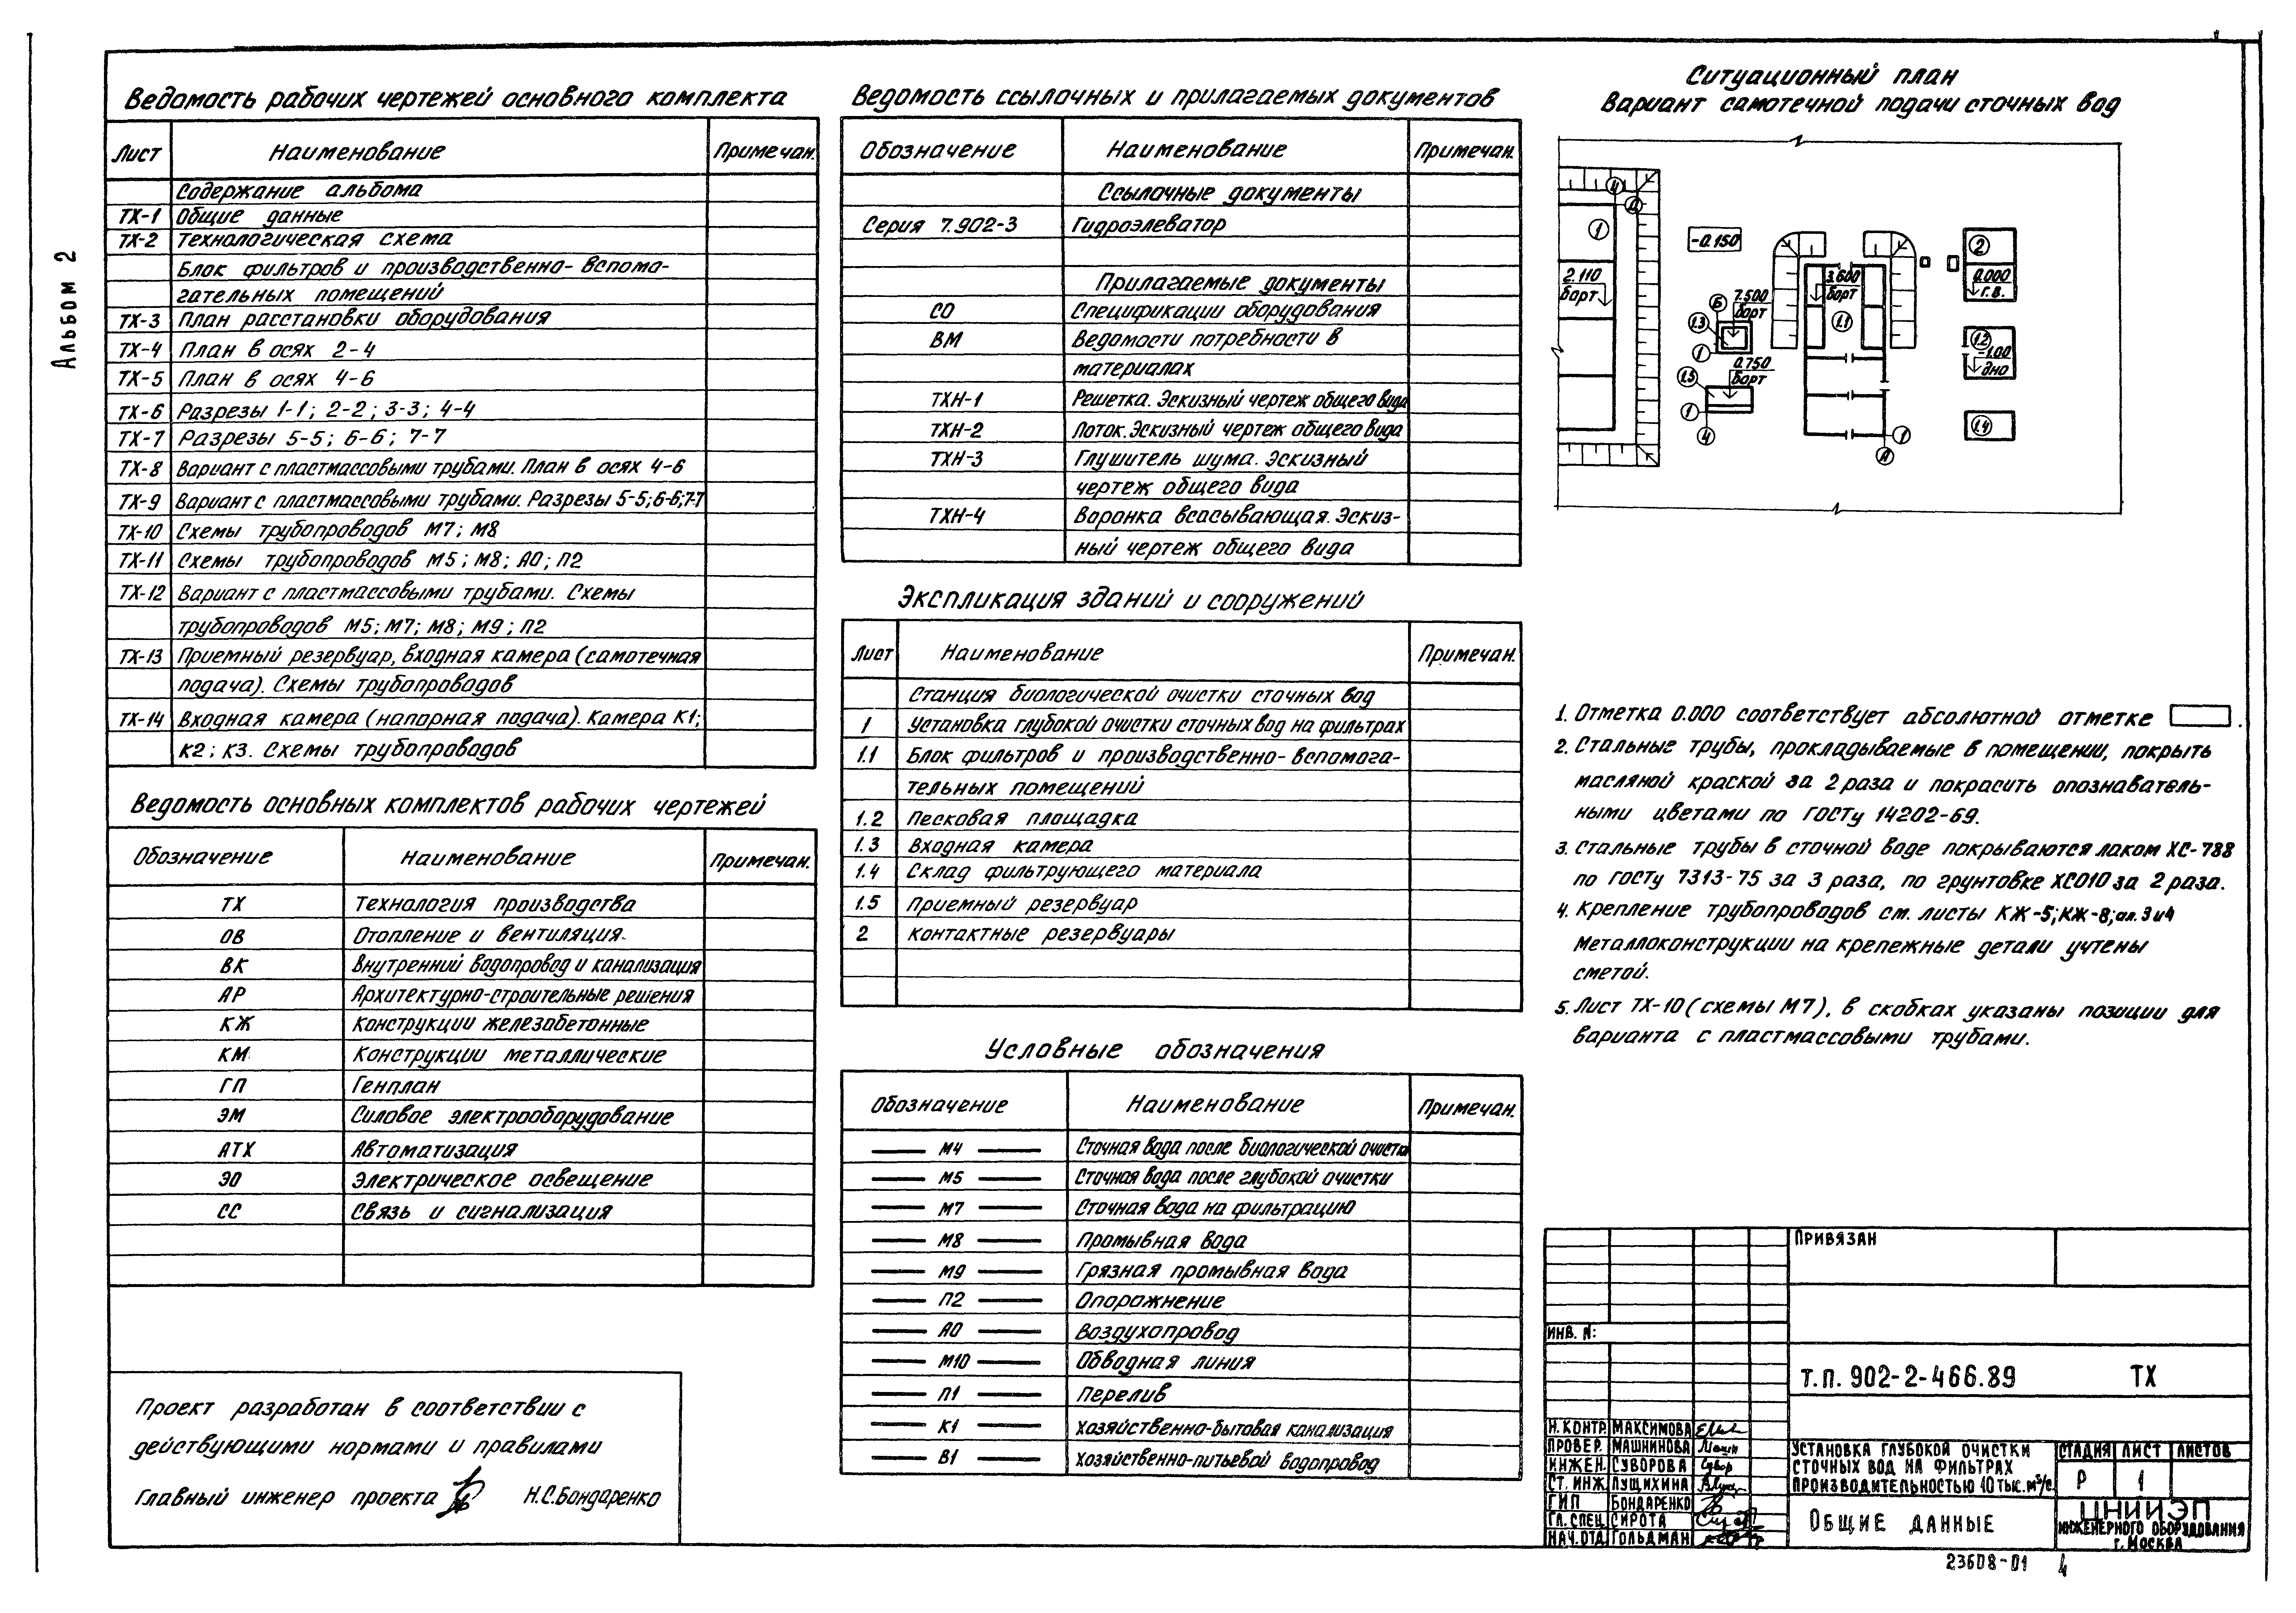 Альбом 2
Ведомость рабочих чертежей основного комплекта
Лист Наименование Примечан.
Содержание альбома
ТХ-1 Общие данные
ТХ-2 Технологическая схема
Блок фильтров и производственно-вспома-
гательных помещений
ТХ-3 План расстановки оборудования
ТХ-4 План в осях 2-4
ТХ-5 План в осях 4-6
ТХ-6 Разрезы 1-1; 2-2; 3-3; 4-4
ТХ-7 Разрезы 5-5; 6-6; 7-7
ТХ-8 Вариант с пластмассовыми трубами. План в осях 4-6
ТХ-9 Вариант с пластмассовыми трубами. Разрезы 5-5; 6-6; 7-7
ТХ-10 Схемы трубопроводов М7; М8
ТХ-11 Схемы трубопроводов М5; М8; А0; П2
ТХ-12 Вариант с пластмассовыми трубами. Схемы
трубопроводов М5; М7; М8; М9; П2
ТХ-13 Приемный резервуар, входная камера (самотечная
подача). Схемы трубопроводов
ТХ-14 Входная камера (напорная подача). Камера К1;
К2; К3. Схемы трубопроводов
Ведомость основных комплектов рабочих чертежей
Обозначение Наименование Примечан.
ТХ Технология производства
ОВ Отопление и вентиляция.
ВК Внутренний водопровод и канализация
АР Архитектурно-строительные решения
КЖ Конструкции железобетонные
КМ Конструкции металлические
ГП Генплан
ЭМ Силовое электрооборудование
АТХ Автоматизация
ЭО Электрическое освещение
СС Связь и сигнализация
Проект разработан в соответствии с
действующими нормами и правилами
Главный инженер проекта Н.С.Бондаренко
Ведомость ссылочных и прилагаемых документов
Обозначение Наименование Примечан.
Ссылочные документы
Серия 7.902-3 Гидроэлеватор
Прилагаемые документы
СО Спецификации оборудования
ВМ Ведомости потребности в
материалах
ТХН-1 Решетка. Эскизный чертеж общего вида
ТХН-2 Лоток. Эскизный чертеж общего вида
ТХН-3 Глушитель шума. Эскизный
чертеж общего вида
ТХН-4 Воронка всасывающая. Эскиз-
ный чертеж общего вида
Экспликация зданий и сооружений
Лист Наименование Примечан.
Станция биологической очистки сточных вод
1 Установка глубокой очистки сточных вод на фильтрах
1.1 Блок фильтров и производственно-вспомога-
тельных помещений
1.2 Песковая площадка
1.3 Входная камера
1.4 Склад фильтрующего материала
1.5 Приемный резервуар
2 Контактные резервуары
Условные обозначения
Обозначение Наименование Примечан.
М4 Сточная вода после биологической очистки
М5 Сточная вода после глубокой очистки
М7 Сточная вода на фильтрацию
М8 Промывная вода
М9 Грязная промывная вода
П2 Опорожнение
А0 Воздухопровод
М10 Обводная линия
П1 Перелив
К1 Хозяйственно-бытовая канализация
В1 Хозяйственно-питьевой водопровод
Ситуационный план
Вариант самотечной подачи сточных вод
1
2.110
борт
-0.150
Б
7.500
борт
1.3
1
0.750
борт
1.5
1
4
3.600
борт
1.1
1
А
2
0.000
г.в.
1.2
-1.00
дно
1.4
1. Отметка 0.000 соответствует абсолютной отметке .
2. Стальные трубы, прокладываемые в помещении, покрыть
масляной краской за 2 раза и покрасить опознаватель-
ными цветами по ГОСТу 14202-69.
3. Стальные трубы в сточной воде покрываются лаком ХС-788
по ГОСТу 7313-75 за 3 раза, по грунтовке ХС010 за 2 раза.
4. Крепление трубопроводов см. листы КЖ-5; КЖ-8; ал. 3 и 4
Металлоконструкции на крепежные детали учтены
сметой.
5. Лист ТХ-10 (схемы М7), в скобках указаны позиции для
варианта с пластмассовыми трубами.
ПРИВЯЗАН
ИНВ. №:
Т.П. 902-2-466.89 ТХ
Н.КОНТР. МАКСИМОВА
ПРОВЕР. МАШНИНОВА
ИНЖЕН. СУВОРОВА
СТ. ИНЖ. ПУЩИХИНА
ГИП БОНДАРЕНКО
ГЛ. СПЕЦ. СИРОТА
НАЧ.ОТД. ГОЛЬДМАН
УСТАНОВКА ГЛУБОКОЙ ОЧИСТКИ
СТОЧНЫХ ВОД НА ФИЛЬТРАХ
ПРОИЗВОДИТЕЛЬНОСТЬЮ 10 ТЫС. М³/С.
СТАДИЯ ЛИСТ ЛИСТОВ
Р 1
ОБЩИЕ ДАННЫЕ
ЦНИИЭП
ИНЖЕНЕРНОГО ОБОРУДОВАНИЯ
Г. МОСКВА
23608-01 4